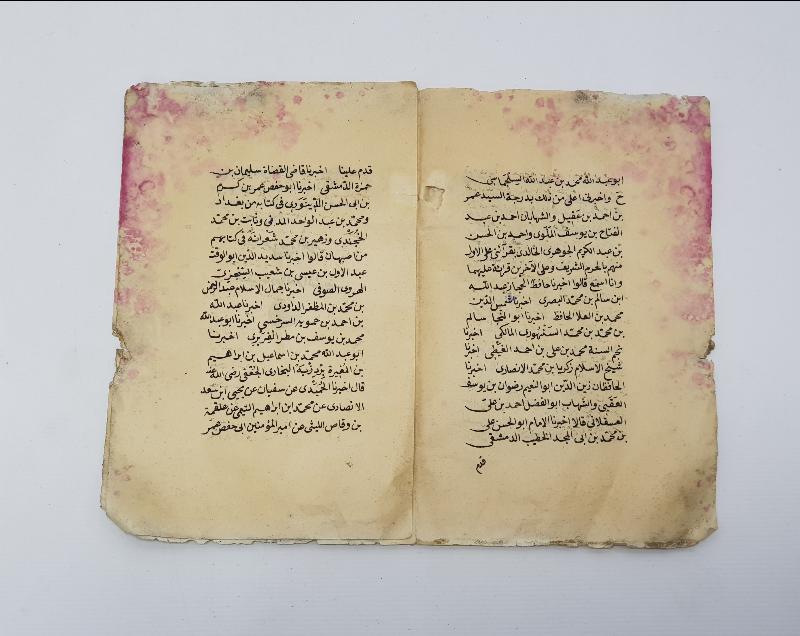 ابو عبد الله محمد بن عبد الله السلجماسى
ح واخبرنى اعلى من ذلك بدرجة السيد عمر
بن احمد بن عقيل والشهابان احمد بن عبد
الفتاح بن يوسف الملوى واحمد بن الحسن
بن عبد الكريم الجوهرى الخالدى بقرأتى على الاول
منهم بالحرم الشريف وعلى الآخرين قرائة عليهما
وانا اسمع قالوا اخبرنا حافظ الحجاز عبد الله
ابن سالم بن محمد البصرى اخبرنا شمس الدين
محمد بن العلا الحافظ اخبرنا ابو النجا سالم
بن محمد بن محمد السنهورى المالكى اخبرنا
نجم السنة محمد بن على بن احمد الغيطى اخبرنا
شيخ الاسلام زكريا بن محمد الانصارى اخبرنا
الحافظان زين الدين ابو النعيم رضوان بن يوسف
العقبى والشهاب ابو الفضل احمد بن على
العسقلانى قالا اخبرنا الامام ابو الحسن على
بن محمد بن ابى المجد الخطيب الدمشقى
قدم
قدم علينا اخبرنا قاضى القضاة سليمان بن
حمزة الدمشقى اخبرنا ابو حفص عمر بن كرم
بن ابى الحسن الدينورى فى كتابه من بغداد
ومحمد بن عبد الواحد المدنى وثابت بن محمد
الخجندى وزهير بن محمد شعرانة فى كتابهم
من اصبهان قالوا اخبرنا سديد الدين ابو الوقت
عبد الاول بن عيسى بن شعيب السجزى
الهروى الصوفى اخبرنا جمال الاسلام عبد الرحمن
بن محمد بن المظفر الداودى اخبرنا عبد الله
بن احمد بن حمويه السرخسى اخبرنا ابو عبد الله
محمد بن يوسف بن مطر الفربرى اخبرنا
ابو عبد الله محمد بن اسماعيل بن ابراهيم
بن المغيرة بزدزبة البخارى الجعفى رضى الله عنه
قال اخبرنا الحميدى عن سفيان عن يحيى ابن سعد
الانصارى عن محمد ابن ابراهيم التيمى عن علقمة
بن وقاص الليثى عن امير المؤمنين ابى حفص عمر